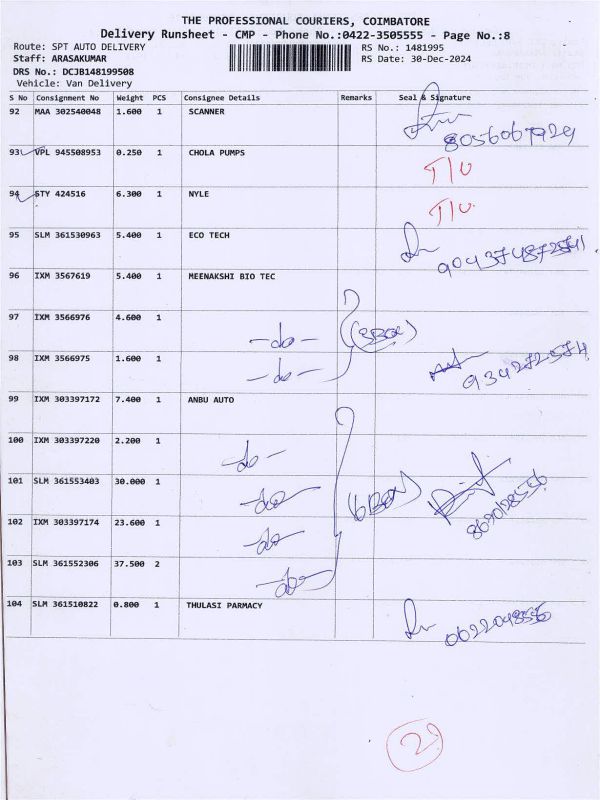 THE PROFESSIONAL COURIERS, COIMBATORE
Delivery Runsheet - CMP - Phone No.:0422-3505555 - Page No.:8
Route: SPT AUTO DELIVERY RS No.: 1481995
Staff: ARASAKUMAR RS Date: 30-Dec-2024
DRS No.: DCJB148199508
Vehicle: Van Delivery
S No Consignment No Weight PCS Consignee Details Remarks Seal & Signature
92 MAA 302540048 1.600 1 SCANNER
93 VPL 945508953 0.250 1 CHOLA PUMPS T/U
94 STY 424516 6.300 1 NYLE T/U
95 SLM 361530963 5.400 1 ECO TECH
96 IXM 3567619 5.400 1 MEENAKSHI BIO TEC
97 IXM 3566976 4.600 1 -do- (3BOX)
98 IXM 3566975 1.600 1 -do- 934272574
99 IXM 303397172 7.400 1 ANBU AUTO
100 IXM 303397220 2.200 1 -do-
101 SLM 361553403 30.000 1 -do- (6BOX)
102 IXM 303397174 23.600 1 -do-
103 SLM 361552306 37.500 2 -do-
104 SLM 361510822 0.800 1 THULASI PARMACY